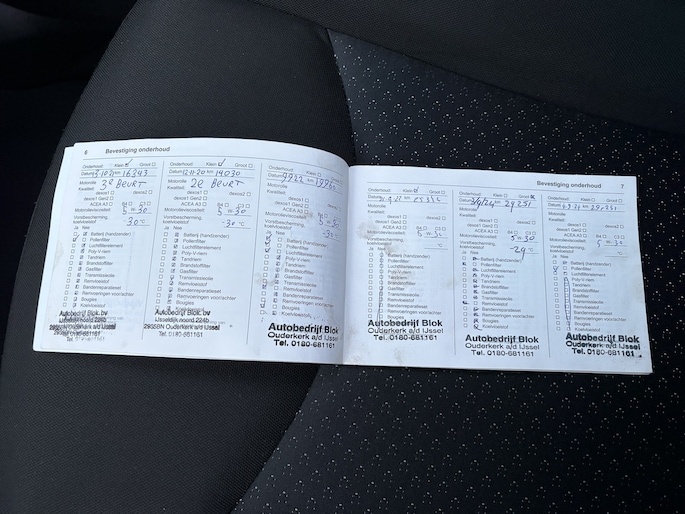 6 Bevestiging onderhoud
Onderhoud: Klein Groot
Datum 13-10-21 km 16343
Motorolie 3e BEURT
Kwaliteit:
dexos1
dexos1 Gen2 dexos2
ACEA A3 B4 C3
Motorolieviscositeit: 5 W 30
Vorstbescherming,
koelvloeistof -30 °C
Ja Nee
Batterij (handzender)
Pollenfilter
Luchtfilterelement
Poly V-riem
Tandriem
Brandstoffilter
Gasfilter
Transmissieolie
Remvloeistof
Bandenreparatieset
Remvoeringen voor/achter
Bougies
Koelvloeistof
Autobedrijf Blok bv
IJsseldijk noord 224b
2935BN Ouderkerk a/d IJssel
Tel. 0180-681161
Onderhoud: Klein Groot
Datum 12-11-20 km 14030
Motorolie 2e BEURT
Kwaliteit:
dexos1
dexos1 Gen2 dexos2
ACEA A3 B4 C3
Motorolieviscositeit: 5 W 30
Vorstbescherming,
koelvloeistof -30 °C
Ja Nee
Batterij (handzender)
Pollenfilter
Luchtfilterelement
Poly V-riem
Tandriem
Brandstoffilter
Gasfilter
Transmissieolie
Remvloeistof
Bandenreparatieset
Remvoeringen voor/achter
Bougies
Koelvloeistof
Autobedrijf Blok bv
IJsseldijk noord 224b
2935BN Ouderkerk a/d IJssel
Tel. 0180-681161
Onderhoud: Klein Groot
Datum
Motorolie
Kwaliteit:
dexos1
dexos1 Gen2 dexos2
ACEA A3 B4 C3
Motorolieviscositeit:
Vorstbescherming,
koelvloeistof
Ja Nee
Batterij (handzender)
Pollenfilter
Luchtfilterelement
Poly V-riem
Tandriem
Brandstoffilter
Gasfilter
Transmissieolie
Remvloeistof
Bandenreparatieset
Remvoeringen voor/achter
Bougies
Koelvloeistof
Autobedrijf Blok
Ouderkerk a/d IJssel
Tel. 0180-681161
Bevestiging onderhoud 7
Onderhoud: Klein Groot
Datum
Motorolie
Kwaliteit:
dexos1
dexos1 Gen2 dexos2
ACEA A3 B4 C3
Motorolieviscositeit:
Vorstbescherming,
koelvloeistof °C
Ja Nee
Batterij (handzender)
Pollenfilter
Luchtfilterelement
Poly V-riem
Tandriem
Brandstoffilter
Gasfilter
Transmissieolie
Remvloeistof
Bandenreparatieset
Remvoeringen voor/achter
Bougies
Koelvloeistof
Autobedrijf Blok
Ouderkerk a/d IJssel
Tel. 0180-681161
Onderhoud: Klein Groot
Datum km 29251
Motorolie
Kwaliteit:
dexos1
dexos1 Gen2 dexos2
ACEA A3 B4 C3
Motorolieviscositeit: 5 W 30
Vorstbescherming,
koelvloeistof -29 °C
Ja Nee
Batterij (handzender)
Pollenfilter
Luchtfilterelement
Poly V-riem
Tandriem
Brandstoffilter
Gasfilter
Transmissieolie
Remvloeistof
Bandenreparatieset
Remvoeringen voor/achter
Bougies
Koelvloeistof
Autobedrijf Blok
Ouderkerk a/d IJssel
Tel. 0180-681161
Onderhoud: Klein Groot
Datum
Motorolie
Kwaliteit:
dexos1
dexos1 Gen2 dexos2
ACEA A3 B4 C3
Motorolieviscositeit:
Vorstbescherming,
koelvloeistof °C
Ja Nee
Batterij (handzender)
Pollenfilter
Luchtfilterelement
Poly V-riem
Tandriem
Brandstoffilter
Gasfilter
Transmissieolie
Remvloeistof
Bandenreparatieset
Remvoeringen voor/achter
Bougies
Koelvloeistof
Autobedrijf Blok
Ouderkerk a/d IJssel
Tel. 0180-681161